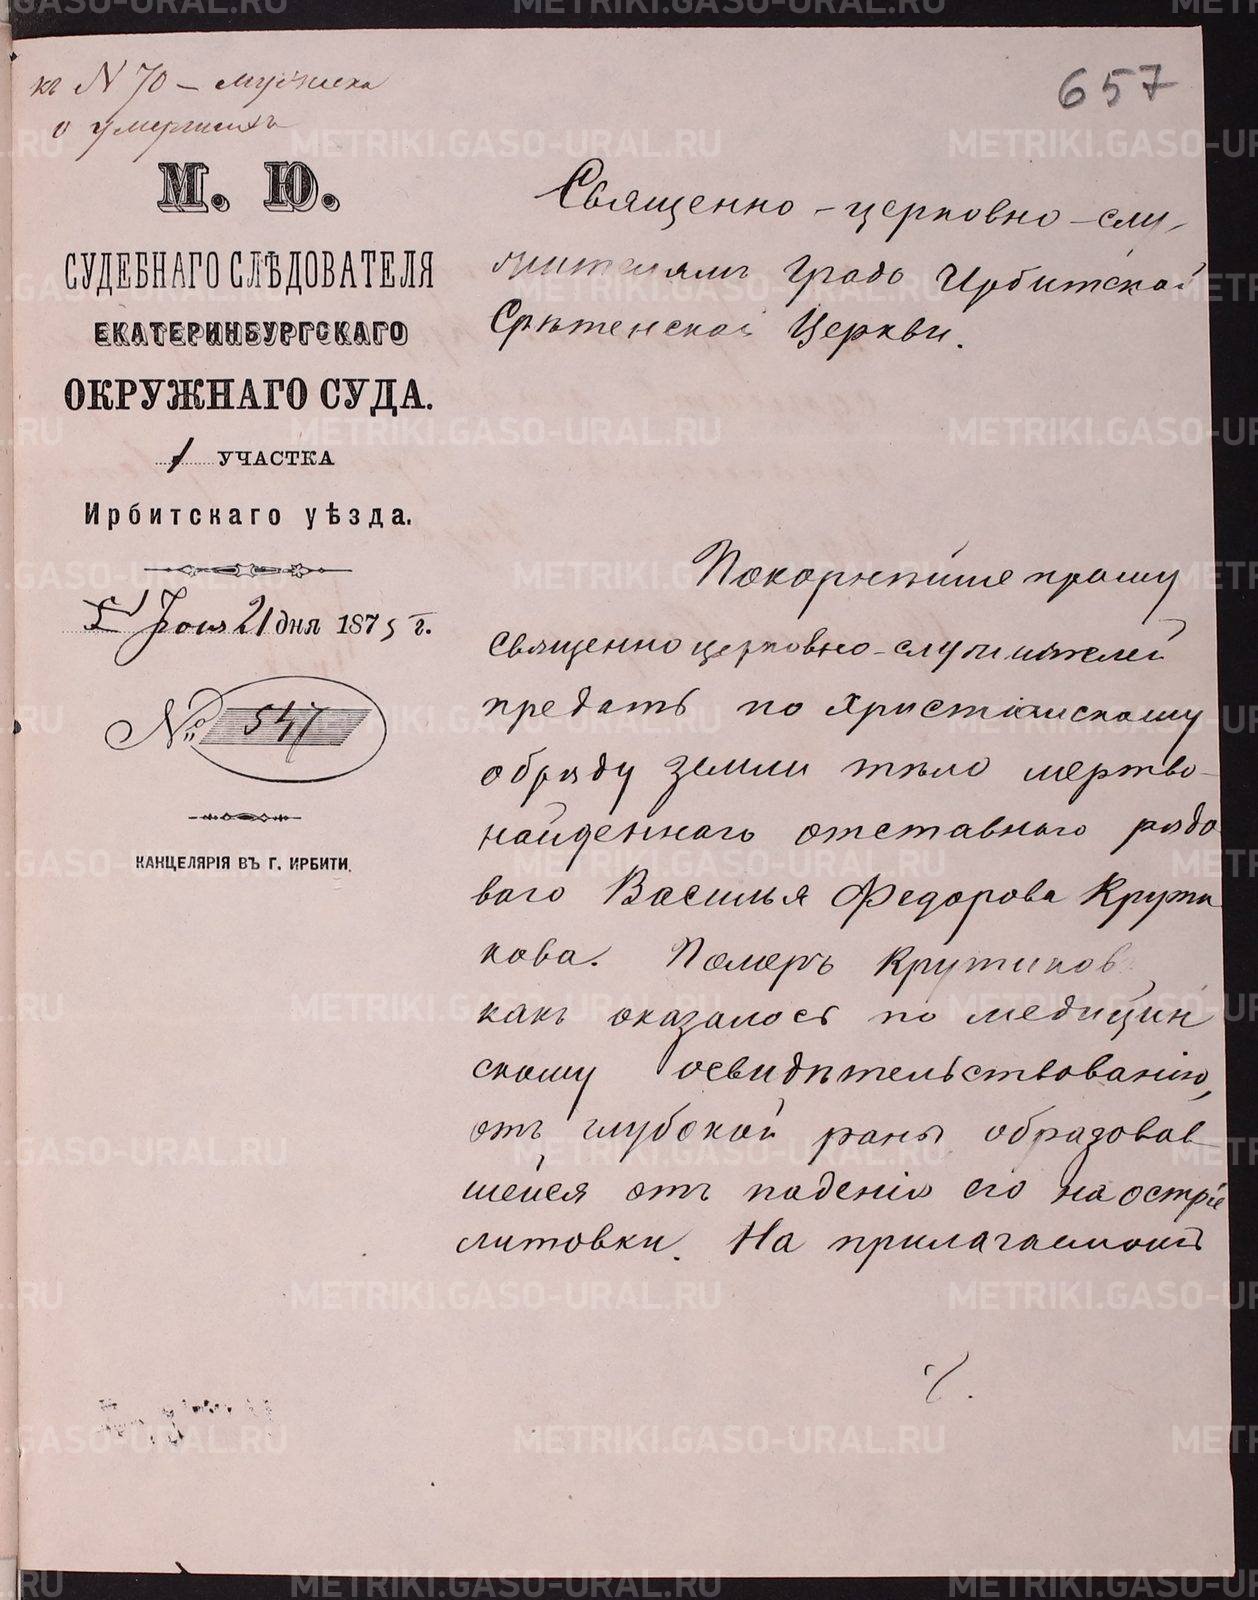 къ N 70 – мужеска
о умершихъ
657
М. Ю.
СУДЕБНАГО СЛѢДОВАТЕЛЯ
ЕКАТЕРИНБУРГСКАГО
ОКРУЖНАГО СУДА.
1 УЧАСТКА
Ирбитскаго уѣзда.
21 дня 1875 г.
№ 547
КАНЦЕЛЯРІЯ ВЪ Г. ИРБИТИ.
Священно-церковно-слу-
жителямъ Градо Ирбитской
Срѣтенской Церкви.
Покорнѣйше прошу
священно церковно-служителей
предать по Христіанскому
обряду земли тѣло мертво-
найденнаго отставнаго рядо
ваго Василья Федорова Крути
кова. Померъ Крутиковъ
какъ оказалось по медицин
скому освидѣтельствованію,
отъ глубокой раны образовав
шейся отъ паденія его на остріе
литовки. На прилагаемомъ
METRIKI.GASO-URAL.RU